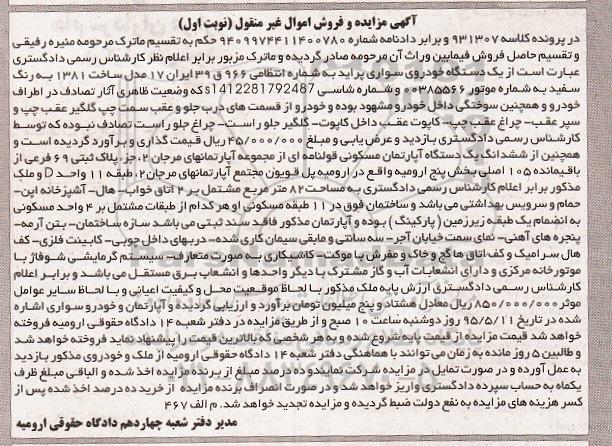 آگهی مزایده و فروش اموال غیر منقول (نوبت اول)
در پرونده کلاسه ۹۳۱۳۰۷ و برابر دادنامه شماره ۹۴۰۹۹۷۴۴۱۱۴۰۰۷۸۰ حکم به تقسیم ماترک مرحومه منیره رفیقی
و تقسیم حاصل فروش فیمابین وراث آن مرحومه صادر گردیده و ماترک مزبور برابر اعلام نظر کارشناس رسمی دادگستری
عبارت است از یک دستگاه خودروی سواری پراید به شماره انتظامی ۹۶۶ ق ۳۹ ایران ۱۷ مدل ساخت ۱۳۸۱ به رنگ
سفید به شماره موتور ۰۰۳۸۵۵۶۶ و شماره شاسی s1412281792487 که وضعیت ظاهری آثار تصادف در اطراف
خودرو و همچنین سوختگی داخل خودرو مشهود بوده و خودرو از قسمت های درب جلو و عقب سمت چپ گلگیر عقب چپ و
سپر عقب- چراغ عقب چپ- کاپوت عقب داخل کاپوت- گلگیر جلو راست- چراغ جلو راست تصادف نبوده که توسط
کارشناس رسمی دادگستری بازدید و عرض یابی و مبلغ ۴۵/۰۰۰/۰۰۰ ریال قیمت گذاری و برآورد گردیده است و
همچنین از ششدانگ یک دستگاه آپارتمان مسکونی قولنامه ای از مجموعه آپارتمانهای مرجان ۲، جزء پلاک ثبتی ۶۹ فرعی از
باقیمانده ۱۰۵ اصلی بخش پنج ارومیه واقع در ارومیه پل قویون مجتمع آپارتمانهای مرجان ۲، طبقه ۱۱ واحد D و ملک
مذکور برابر اعلام کارشناس رسمی دادگستری به مساحت ۸۲ متر مربع مشتمل بر ۲ اتاق خواب- هال- آشپزخانه اپن-
حمام و سرویس بهداشتی می باشد و ساختمان فوق در ۱۱ طبقه مسکونی او هر کدام از طبقات مشتمل بر ۴ واحد مسکونی
به انضمام یک طبقه زیرزمین (پارکینگ) بوده و آپارتمان مذکور فاقد سند ثبتی می باشد سازه ساختمان- بتن آرمه-
پنجره های آهنی- نمای سمت خیابان آجر- سه سانتی و مابقی سیمان کاری شده- دربهای داخل چوبی- کابینت فلزی- کف
هال سرامیک و کف اتاق ها گچ و خاک و مفرش با موکت- کاشیکاری به صورت متعارف- سیستم گرمایشی شوفاژ با
موتورخانه مرکزی و دارای انشعابات آب و گاز مشترک با دیگر واحدها و انشعاب برق مستقل می باشد و برابر اعلام
کارشناس رسمی دادگستری ارزش پایه ملک مذکور با لحاظ موقعیت محل و کیفیت اعیانی و با لحاظ سایر عوامل
موثر ۸۵۰/۰۰۰/۰۰۰ ریال معادل هشتاد و پنج میلیون تومان برآورد و ارزیابی گردیده و آپارتمان و خودرو سواری اشاره
شده در تاریخ ۹۵/۵/۱۱ روز دوشنبه ساعت ۱۰ صبح و از طریق مزایده در دفتر شعبه ۱۴ دادگاه حقوقی ارومیه فروخته
خواهد شد قیمت مزایده از قیمت پایه شروع شده و به هر شخصی که بالاترین قیمت را پیشنهاد نماید فروخته خواهد شد
و طالبین ۵ روز مانده به زمان می توانند با هماهنگی دفتر شعبه ۱۴ دادگاه حقوقی ارومیه از ملک و خودروی مذکور بازدید
به عمل آورده و در صورت تمایل در مزایده شرکت نمایند و ده درصد مبلغ از برنده مزایده اخذ شده و الباقی مبلغ ظرف
یکماه به حساب سپرده دادگستری واریز خواهد شد و در صورت انصراف برنده مزایده از خرید ده درصد اخذ شده پس از
کسر هزینه های مزایده به نفع دولت ضبط گردیده و مزایده تجدید خواهد شد. م الف ۴۶۷
مدیر دفتر شعبه چهاردهم دادگاه حقوقی ارومیه